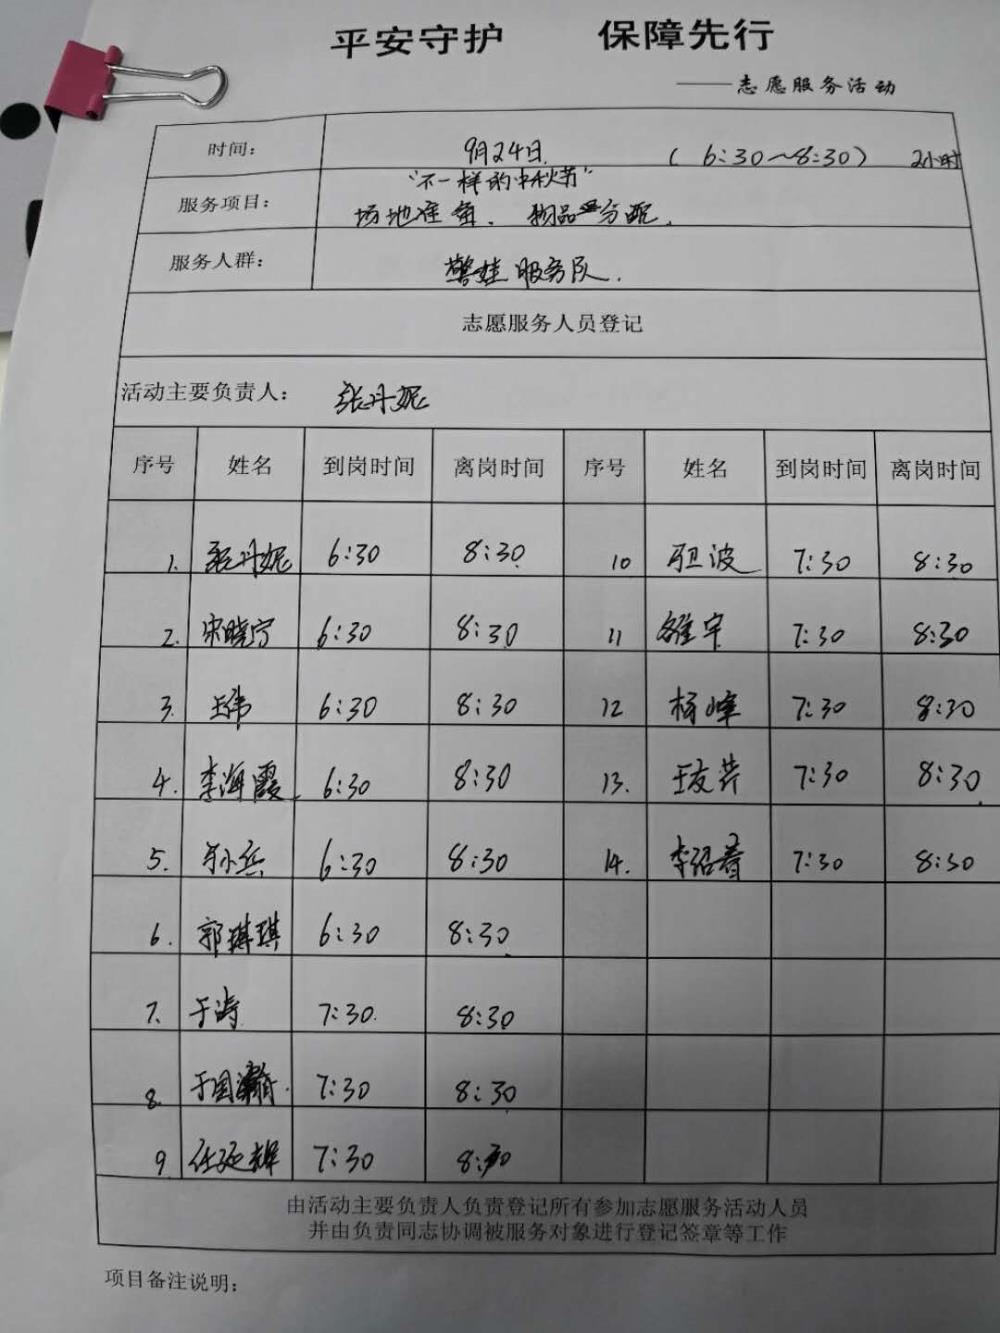 平安守护 保障先行
——志愿服务活动
时间： 9月24日. (6:30～8:30) 2小时
服务项目： "不一样的中秋节"
场地准备、物品分配.
服务人群： 警娃服务队.
志愿服务人员登记
活动主要负责人： 张丹妮
序号 姓名 到岗时间 离岗时间 序号 姓名 到岗时间 离岗时间
1. 张丹妮 6:30 8:30 10 波 7:30 8:30
2. 宋晓宁 6:30 8:30 11 7:30 8:30
3. 王伟 6:30 8:30 12 杨峰 7:30 8:30
4. 李海霞 6:30 8:30 13. 王友芹 7:30 8:30
5. 小兵 6:30 8:30 14. 李绍春 7:30 8:30
6. 郭琪琪 6:30 8:30
7. 于涛 7:30. 8:30
8. 于国瀚. 7:30 8:30
9 任延辉 7:30 8:30
由活动主要负责人负责登记所有参加志愿服务活动人员
并由负责同志协调被服务对象进行登记签章等工作
项目备注说明：